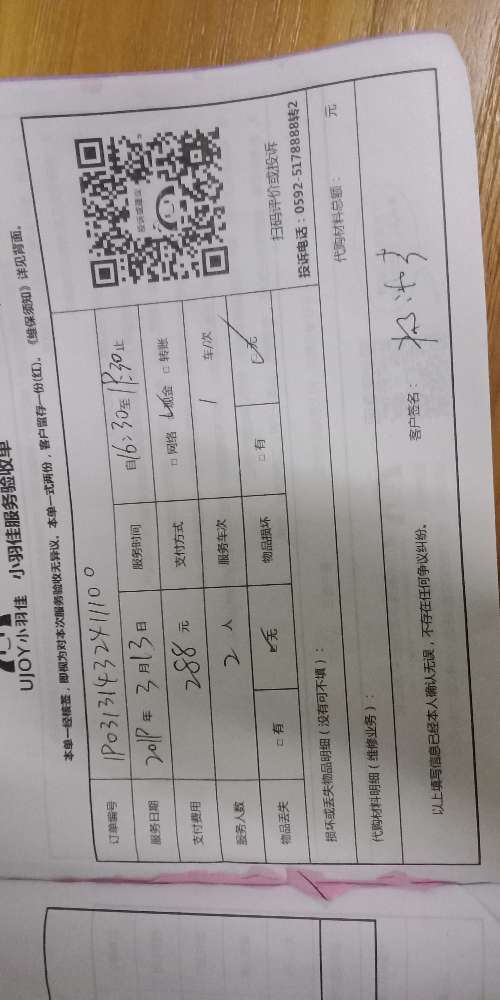 UJOY小羽佳 小羽佳服务验收单
本单一经核签，即视为对本次服务验收无异议。本单一式两份，客户留存一份(红)。《维保须知》详见背面。
订单编号 1P03131432411100
服务日期 2019年3月13日 服务时间 自16:30至18:30止
支付费用 288元 支付方式 □网络 ☑现金 □转账
服务人数 2人 服务车次 1车/次
物品丢失 □有 ☑无 物品损坏 □有 ☑无
投诉或建议
扫码评价或投诉
投诉电话：0592-5178888转2
损坏或丢失物品明细（没有可不填）：
代购材料明细（维修业务）： 代购材料总额： 元
以上填写信息已经本人确认无误，不存在任何争议纠纷。
客户签名：